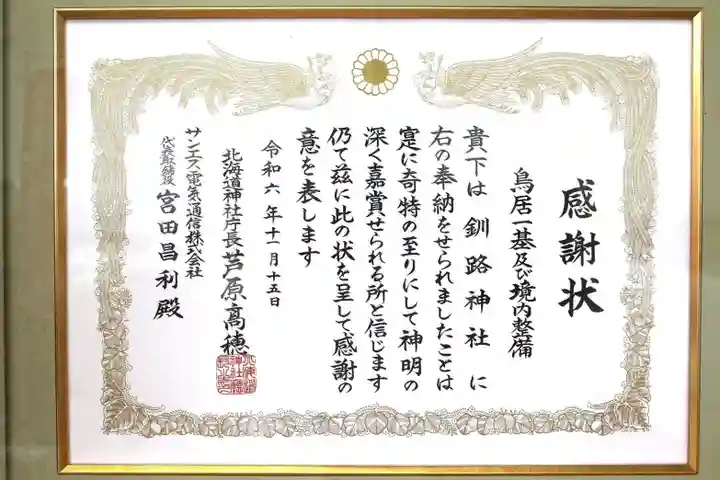 感謝状
鳥居一基及び境内整備
貴下は釧路神社に
右の奉納をせられましたことは
寔に奇特の至りにして神明の
深く嘉賞せられる所と信じます
仍て茲に此の状を呈して感謝の
意を表します
令和六年十一月十五日
北海道神社庁長芦原高穂
サンエス電気通信株式会社
代表取締役宮田昌利殿